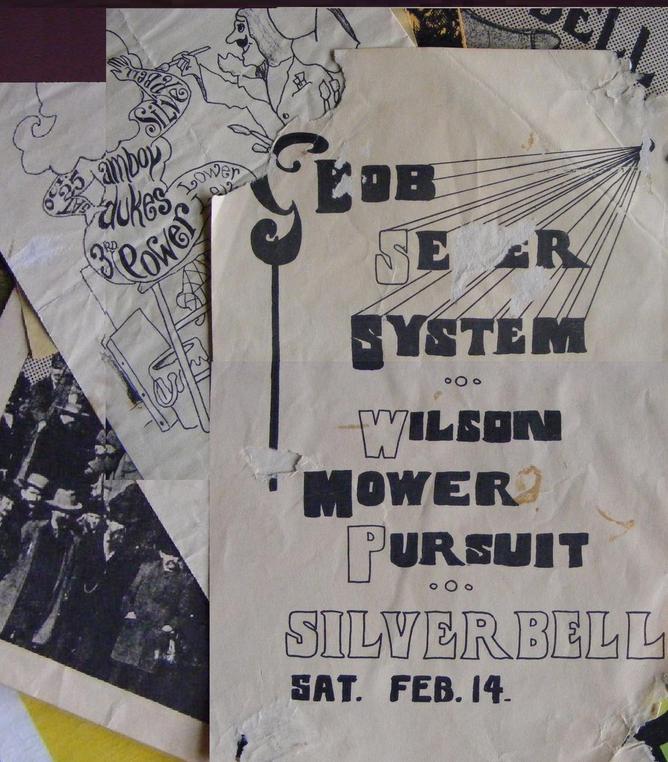 BELL
SILVE
.25 The
amboy
dukes
3RD Power
Lower
BOB
SE ER
SYSTEM
WILSON
MOWER
PURSUIT
SILVERBELL
SAT. FEB. 14.